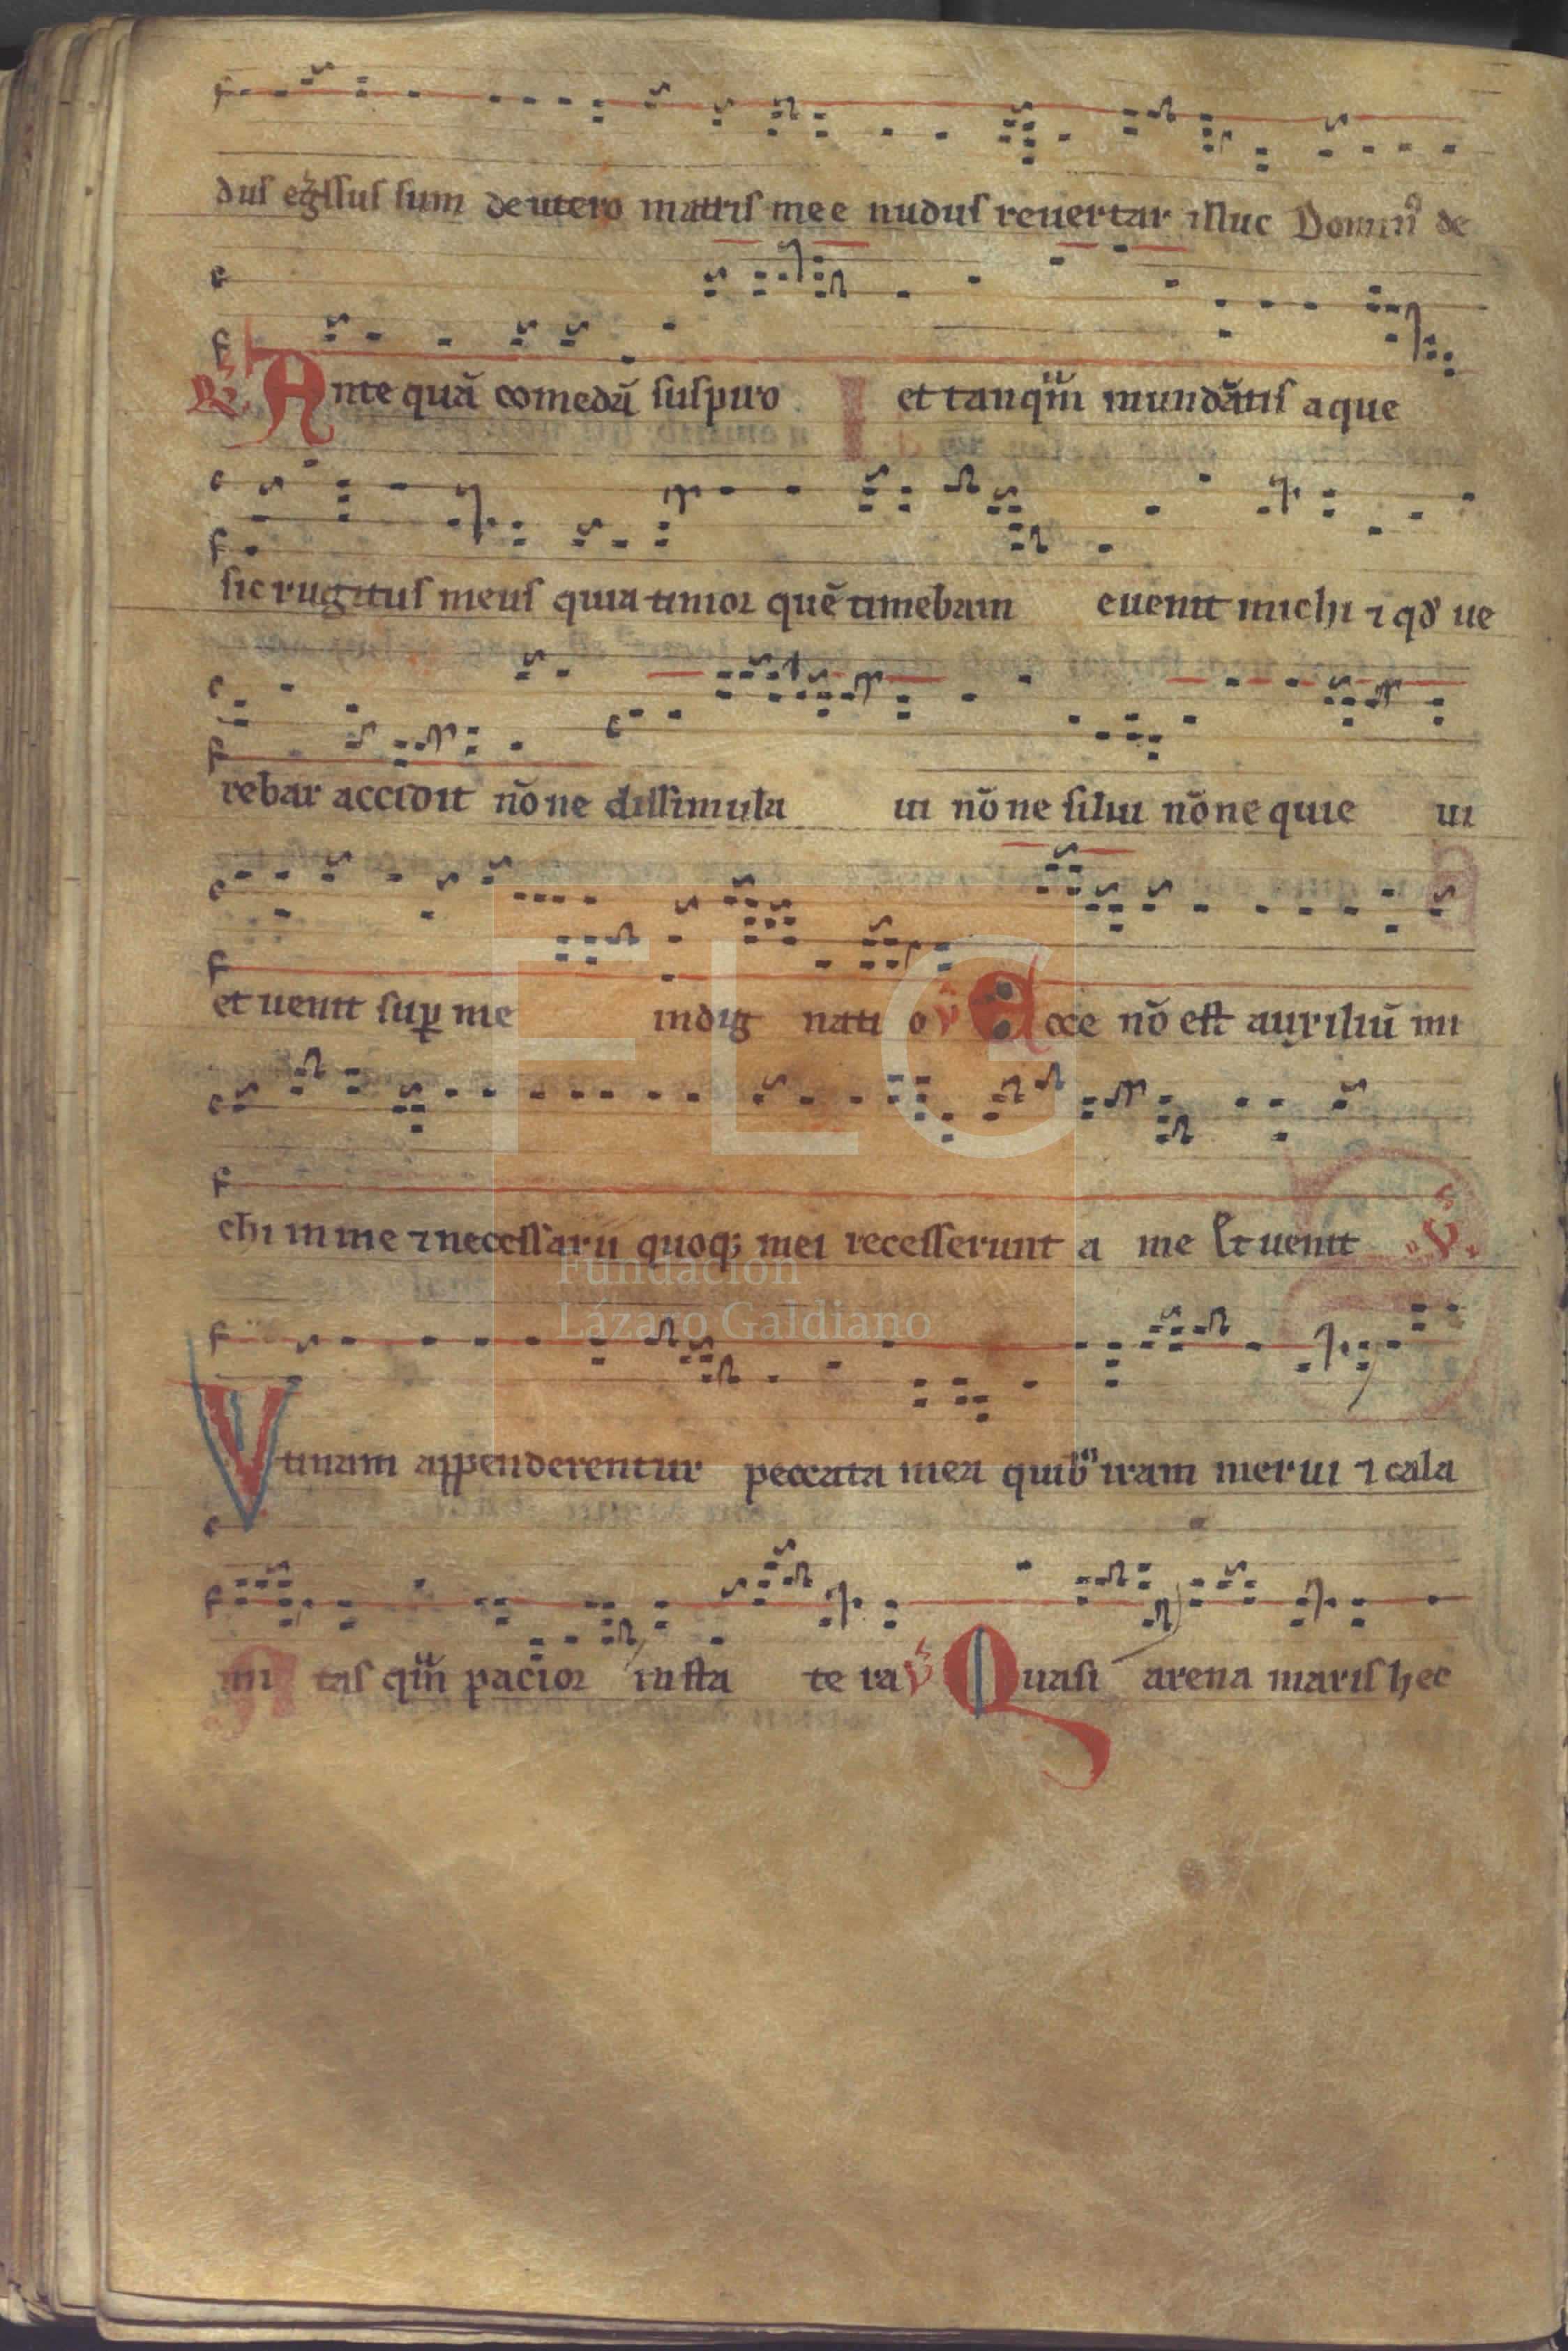 dus egr̃ssus sum de utero matris mee nudus reuertar illuc Domin⁹ de
℟ Ante quā comedā suspiro et tanq̃m mundãtis aque
sic rugitus meus quia timor quē timebam euenit michi ⁊ qđ ue
rebar accidit nō ne dissimula ui nō ne silui nō ne quie ui
et uenit suꝑ me indig nati o ℣ Ecce nō est auxiliū mi
chi in me ⁊ necessarii quoqꝫ mei recesserunt a me Et uenit ℣
Vtinam appenderentur peccata mea quib⁹ iram merui ⁊ cala
mi tas q̃m pacior in sta te ra ℣ Quasi arena maris hec
FLG
Fundación
Lázaro Galdiano